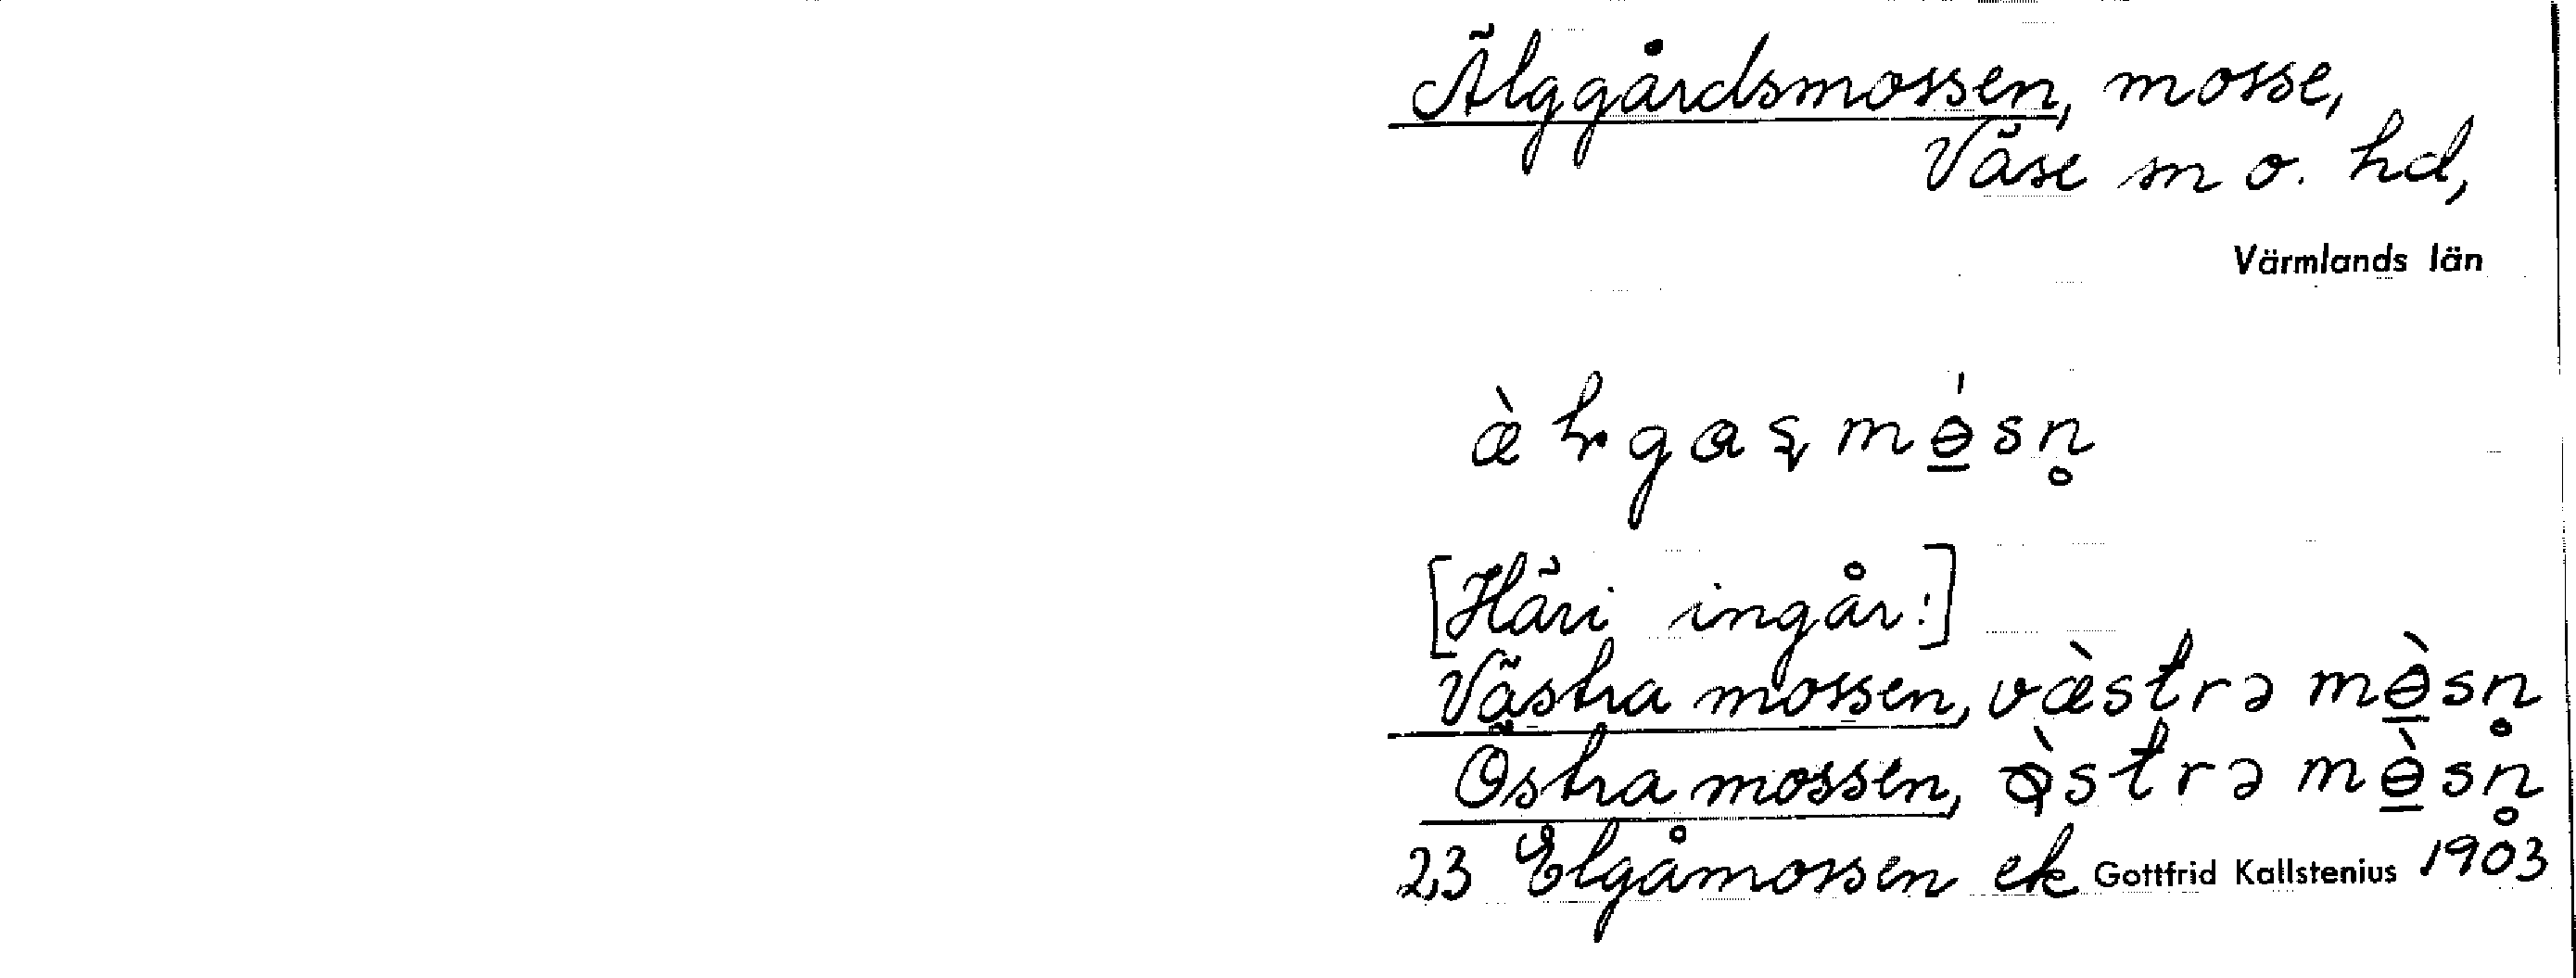 Älggårdsmossen, mosse,
Väse sn o. hd,
Värmlands län
[Häri ingår:]
Västra mossen, væ̀strə mɵ̀sn̥
Östra mossen, ɵ̀strə mɵ̀sn̥
23 Elgåmossen ek Gottfrid Kallstenius 1903